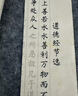 道德经节选
上善若水水善利万物而不
争处众人之所恶故几于